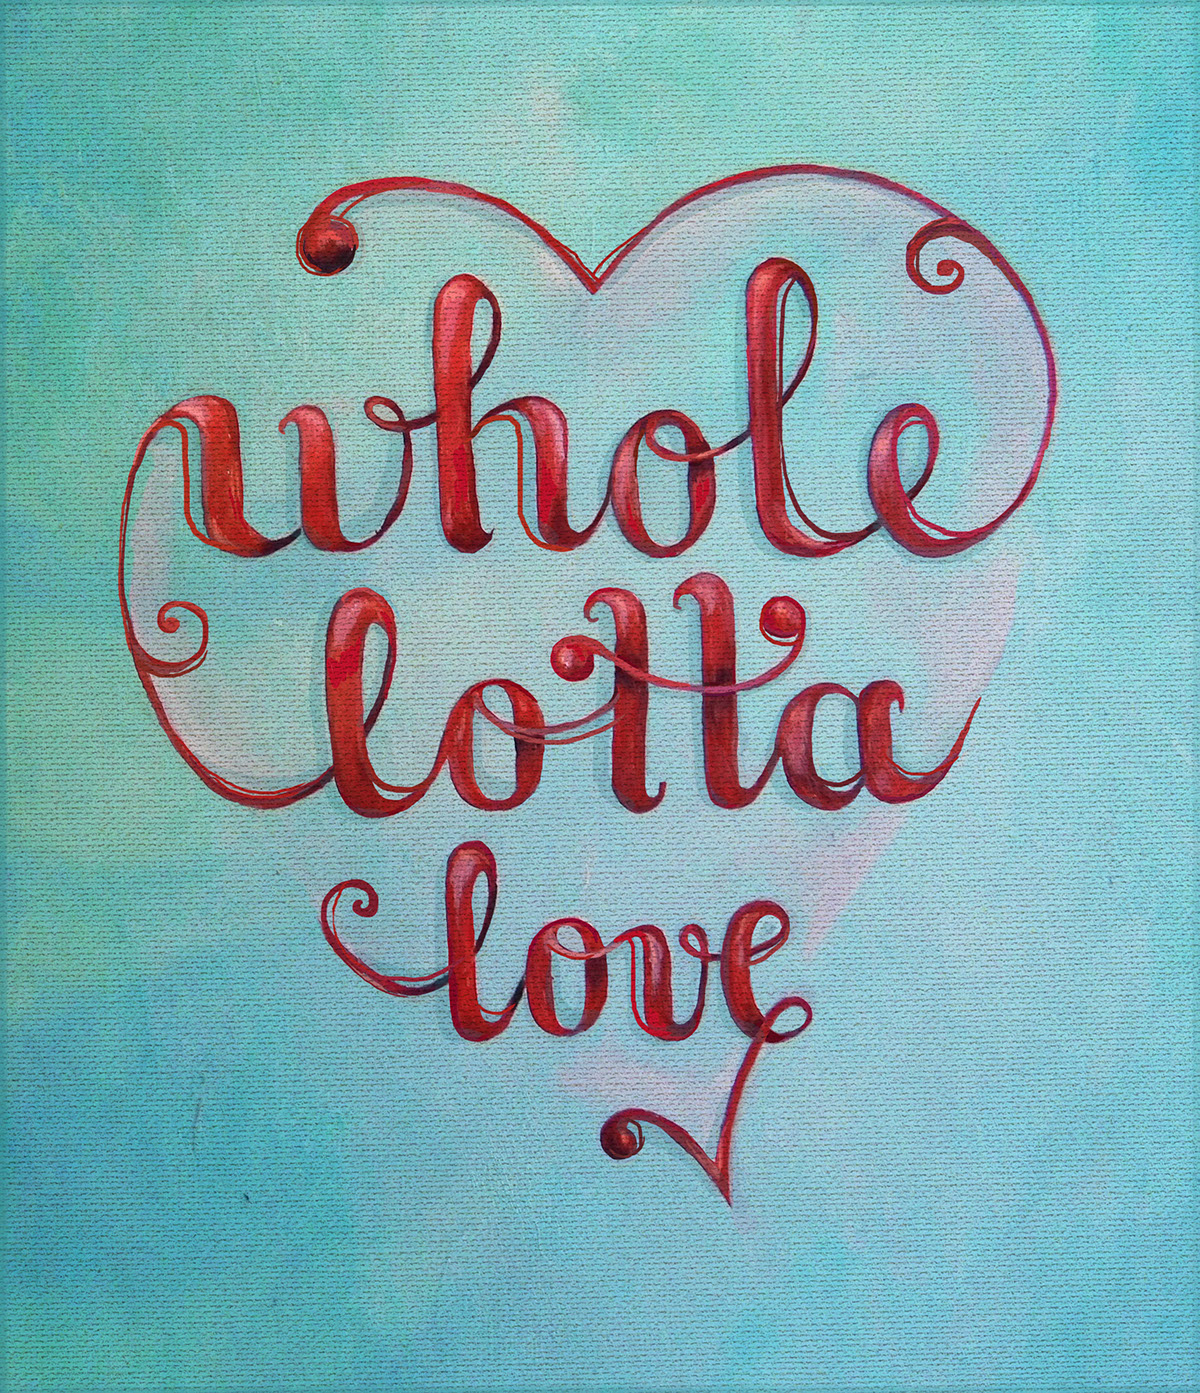 whole
lotta
love